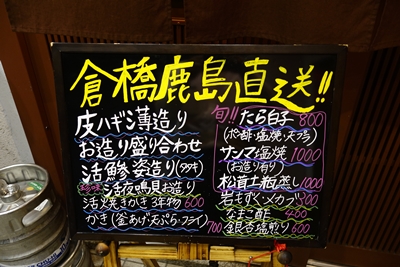 倉橋鹿島直送!!
皮ハギシ薄造り
お造り盛り合わせ
活鯵姿造り(タタキ)
活夜鳴貝お造り
活焼きかき3年物600
かき(釜あげ・天ぷら・フライ)700
旬!!たら白子800
(ポン酢・塩焼・天プラ)
サンマ塩焼1000
(お造り有り)
松茸土瓶蒸し1000
岩もずく・メカブ300
なまこ酢400
銀杏塩煎り600